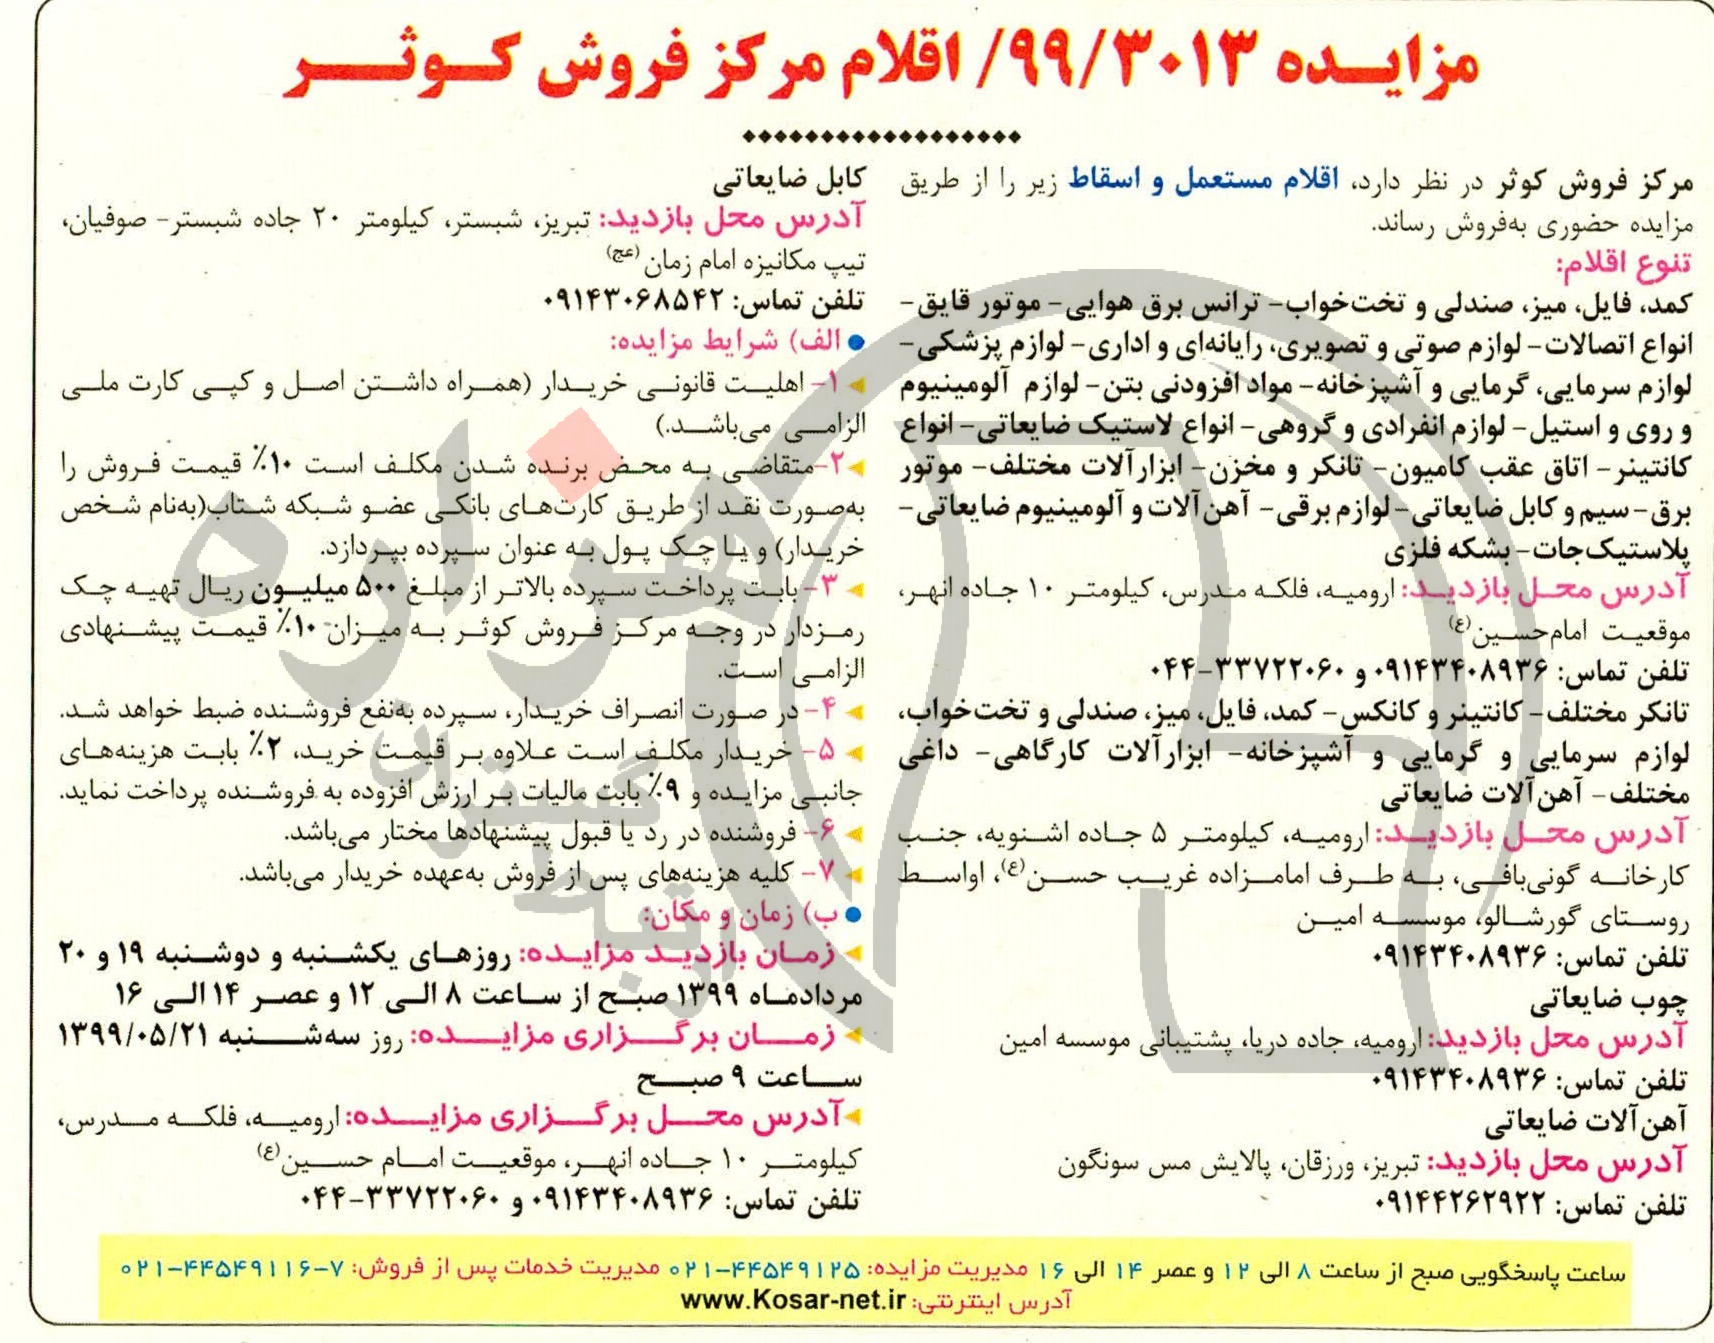 مزایـده ۹۹/۳۰۱۳/ اقلام مرکز فروش کـوثـر
مرکز فروش کوثر در نظر دارد، اقلام مستعمل و اسقاط زیر را از طریق
مزایده حضوری به‌فروش رساند.
تنوع اقلام:
کمد، فایل، میز، صندلی و تخت‌خواب- ترانس برق هوایی- موتور قایق-
انواع اتصالات- لوازم صوتی و تصویری، رایانه‌ای و اداری- لوازم پزشکی-
لوازم سرمایی، گرمایی و آشپزخانه- مواد افزودنی بتن- لوازم آلومینیوم
و روی و استیل- لوازم انفرادی و گروهی- انواع لاستیک ضایعاتی- انواع
کانتینر- اتاق عقب کامیون- تانکر و مخزن- ابزارآلات مختلف- موتور
برق- سیم و کابل ضایعاتی- لوازم برقی- آهن‌آلات و آلومینیوم ضایعاتی-
پلاستیک‌جات- بشکه فلزی
آدرس محل بازدید: ارومیه، فلکه مدرس، کیلومتر ۱۰ جاده انهر،
موقعیت امام‌حسین(ع)
تلفن تماس: ۰۹۱۴۳۴۰۸۹۳۶ و ۳۳۷۲۲۰۶۰-۰۴۴
تانکر مختلف- کانتینر و کانکس- کمد، فایل، میز، صندلی و تخت‌خواب،
لوازم سرمایی و گرمایی و آشپزخانه- ابزارآلات کارگاهی- داغی
مختلف- آهن‌آلات ضایعاتی
آدرس محل بازدید: ارومیه، کیلومتر ۵ جاده اشنویه، جنب
کارخانه گونی‌بافی، به طرف امامزاده غریب حسن(ع)، اواسط
روستای گورشالو، موسسه امین
تلفن تماس: ۰۹۱۴۳۴۰۸۹۳۶
چوب ضایعاتی
آدرس محل بازدید: ارومیه، جاده دریا، پشتیبانی موسسه امین
تلفن تماس: ۰۹۱۴۳۴۰۸۹۳۶
آهن‌آلات ضایعاتی
آدرس محل بازدید: تبریز، ورزقان، پالایش مس سونگون
تلفن تماس: ۰۹۱۴۴۲۶۲۹۲۲
کابل ضایعاتی
آدرس محل بازدید: تبریز، شبستر، کیلومتر ۲۰ جاده شبستر- صوفیان،
تیپ مکانیزه امام زمان(عج)
تلفن تماس: ۰۹۱۴۳۰۶۸۵۴۲
● الف) شرایط مزایده:
۱- اهلیت قانونی خریدار (همراه داشتن اصل و کپی کارت ملی
الزامی می‌باشد.)
۲- متقاضی به محض برنده شدن مکلف است ۱۰٪ قیمت فروش را
به‌صورت نقد از طریق کارت‌های بانکی عضو شبکه شتاب(به‌نام شخص
خریدار) و یا چک پول به عنوان سپرده بپردازد.
۳- بابت پرداخت سپرده بالاتر از مبلغ ۵۰۰ میلیون ریال تهیه چک
رمزدار در وجه مرکز فروش کوثر به میزان ۱۰٪ قیمت پیشنهادی
الزامی است.
۴- در صورت انصراف خریدار، سپرده به‌نفع فروشنده ضبط خواهد شد.
۵- خریدار مکلف است علاوه بر قیمت خرید، ۲٪ بابت هزینه‌های
جانبی مزایده و ۹٪ بابت مالیات بر ارزش افزوده به فروشنده پرداخت نماید.
۶- فروشنده در رد یا قبول پیشنهادها مختار می‌باشد.
۷- کلیه هزینه‌های پس از فروش به‌عهده خریدار می‌باشد.
● ب) زمان و مکان:
زمان بازدید مزایده: روزهای یکشنبه و دوشنبه ۱۹ و ۲۰
مردادماه ۱۳۹۹ صبح از ساعت ۸ الی ۱۲ و عصر ۱۴ الی ۱۶
زمان برگزاری مزایده: روز سه‌شنبه ۱۳۹۹/۰۵/۲۱
ساعت ۹ صبح
آدرس محل برگزاری مزایده: ارومیه، فلکه مدرس،
کیلومتر ۱۰ جاده انهر، موقعیت امام حسین(ع)
تلفن تماس: ۰۹۱۴۳۴۰۸۹۳۶ و ۳۳۷۲۲۰۶۰-۰۴۴
ساعت پاسخگویی صبح از ساعت ۸ الی ۱۲ و عصر ۱۴ الی ۱۶ مدیریت مزایده: ۴۴۵۴۹۱۲۵-۰۲۱ مدیریت خدمات پس از فروش: ۷-۴۴۵۴۹۱۱۶-۰۲۱
آدرس اینترنتی: www.Kosar-net.ir
هزاره